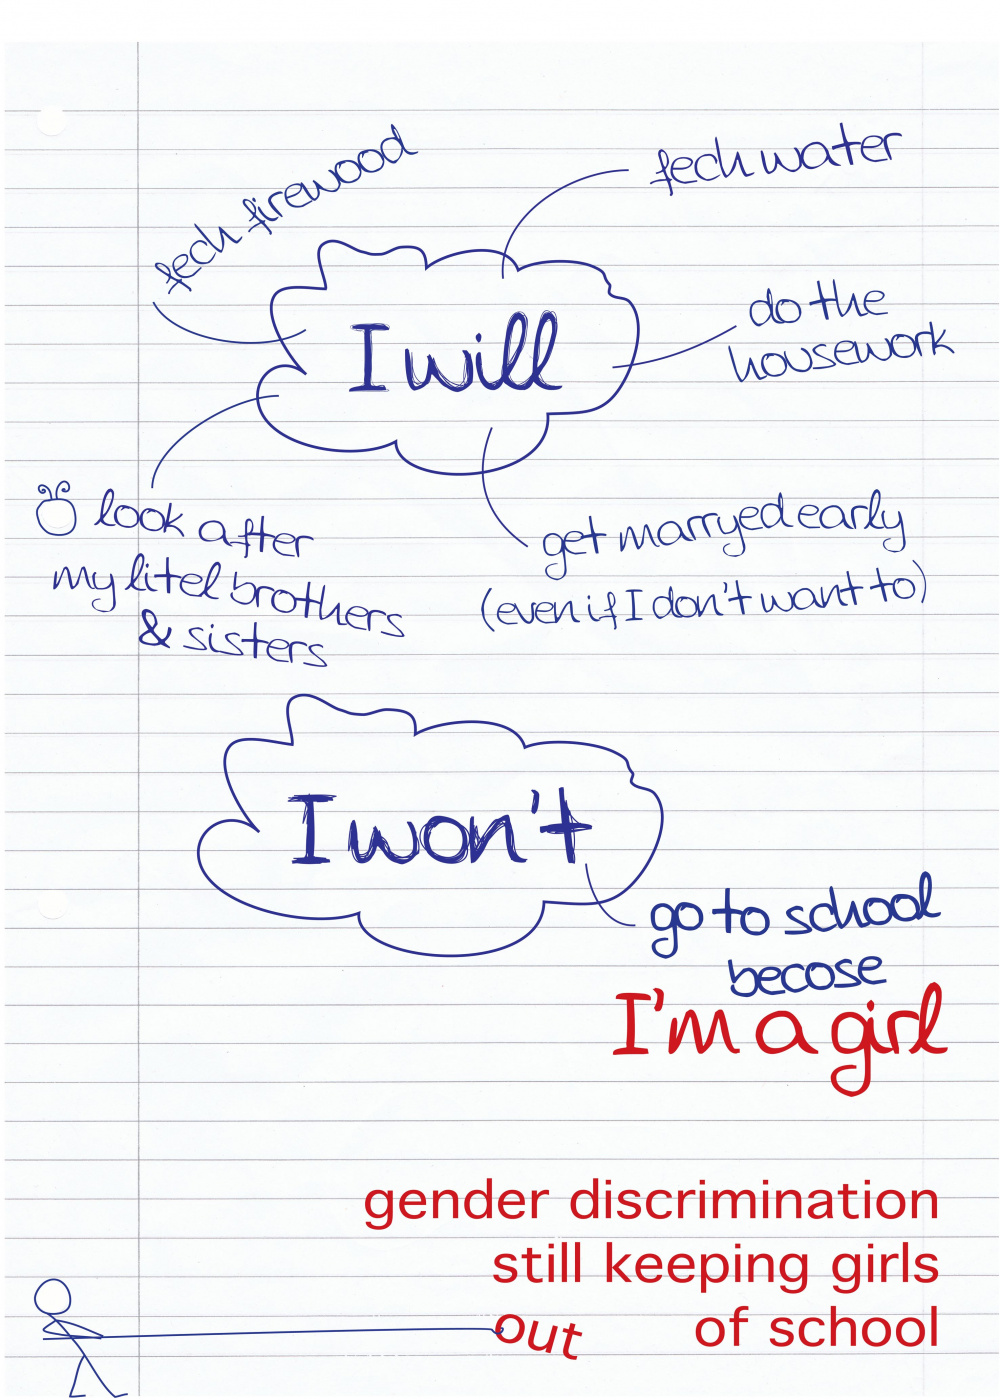 fech firewood
fech water
I will
do the
housework
look after
my litel brothers
& sisters
get marryed early
(even if I don't want to)
I won't
go to school
becose
I'm a girl
gender discrimination
still keeping girls
out of school